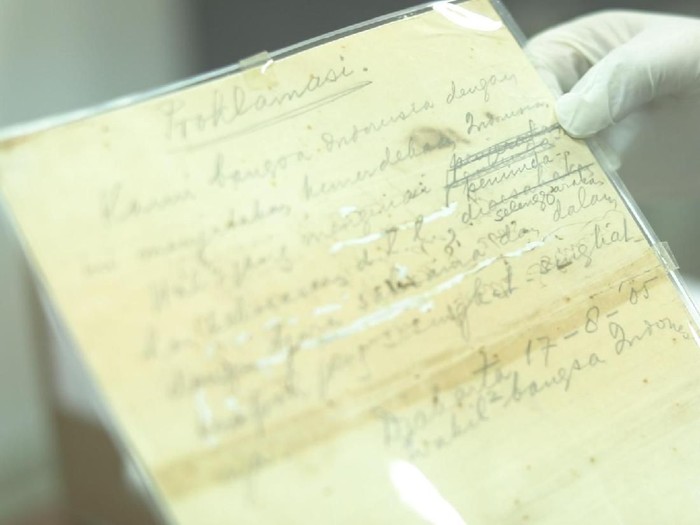 Proklamasi.
Kami bangsa Indonesia dengan
ini menjatakan kemerdekaan Indonesia
Hal2 jang mengenai peminda-
han kekoeasaan d.l.l., diselenggarakan
dengan tjara saksama dan dalam
tempo jang sesingkat-singkat
nja
Djakarta 17-8-'05
Wakil2 bangsa Indones